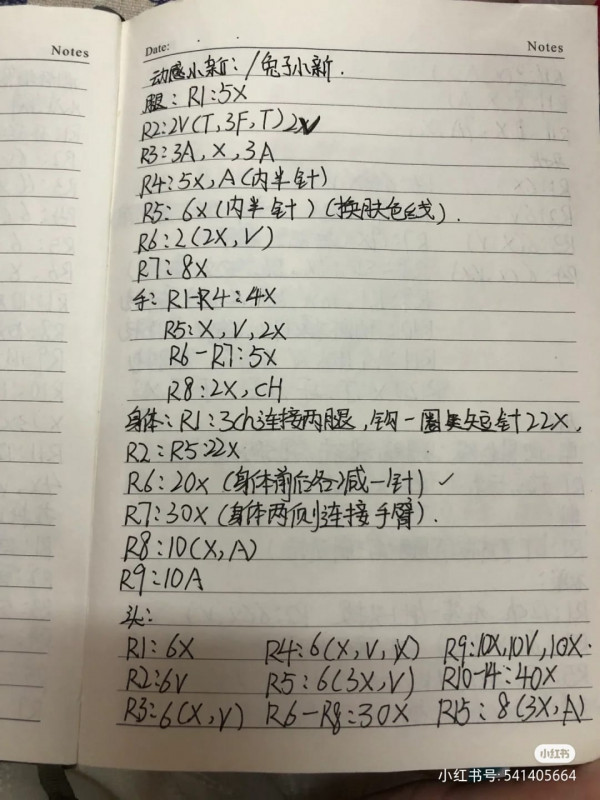 Notes
Date:
Notes
动感小新:/兔子小新.
腿:R1:5X
R2:2V(T,3F,T)2V
R3:3A,X,3A
R4:5X,A(内半针)
R5:6X(内半针)(换肤色线).
R6:2(2X,V)
R7:8X
手:R1-R4:4X
R5:X,V,2X
R6-R7:5X
R8:2X,CH
身体:R1:3ch连接两腿,钩一圈短针22X.
R2:R5:22X
R6:20X(身体前后各减一针)✓
R7:30X(身体两侧连接手臂).
R8:10(X,A)
R9:10A
头:
R1:6X R4:6(X,V,X) R9:10X,10V,10X.
R2:6V R5:6(3X,V) R10-14:40X
R3:6(X,V) R6-R8:30X R15:8(3X,A)
小红书
小红书号:541405664